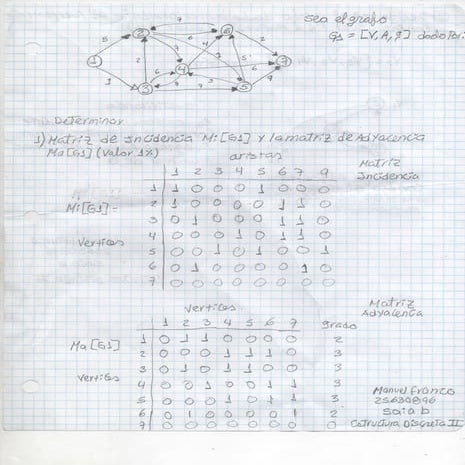 Sea el grafo
G1 = [V, A, φ] dado por:
5 2 7 6 2
1 2 7 4 4 6 5 7
1 3 3 7 5 9
Determinar
1) Matriz de Incidencia Mi[G1] y la matriz de Adyacencia
Ma[G1] (Valor 1%)
aristas
Matriz
Incidencia
1 2 3 4 5 6 7 9
Mi[G1] =
Vertices
1 1 0 0 0 1 0 0 0
2 1 0 0 0 0 1 1 0
3 0 1 0 0 0 1 1 0
4 0 0 0 1 0 1 1 0
5 0 0 1 0 1 0 0 1
6 0 1 0 0 0 0 1 0
7 0 0 0 0 0 0 0 0
Matriz
Adyacencia
Vertices
1 2 3 4 5 6 7 grado
Ma[G1]
vertices
1 0 1 1 0 0 0 0 2
2 0 0 0 1 1 1 0 3
3 0 1 0 1 1 0 0 3
4 0 0 1 0 0 1 1 3
5 0 0 0 1 0 1 1 3
6 0 1 0 0 0 0 1 2
7 0 0 0 0 0 0 0 0
Manuel Franco
25630896
Saia b
Estructura Discreta II